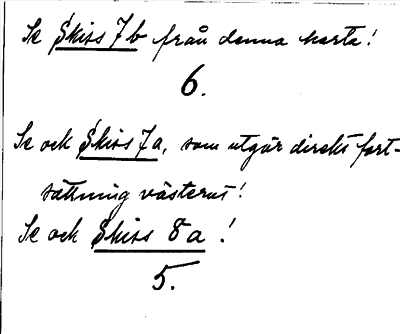 Se Skiss 7b från denna karta!
6.
Se och Skiss 7a, som utgör direkt fort-
sättning västerut!
Se och Skiss 8a!
5.